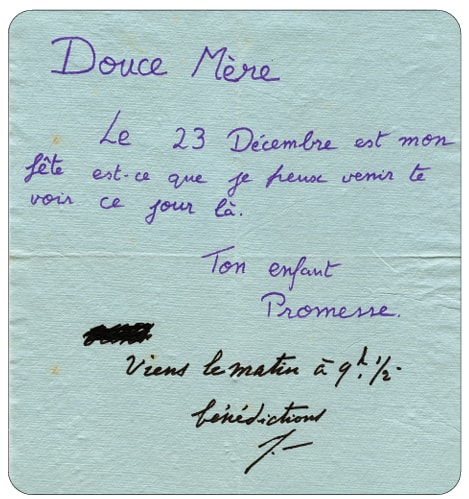 Douce Mère
Le 23 Décembre est mon
fête est-ce que je peux venir te
voir ce jour là.
Ton enfant
Promesse.
Viens le matin à 9h. 1/2-
bénédictions